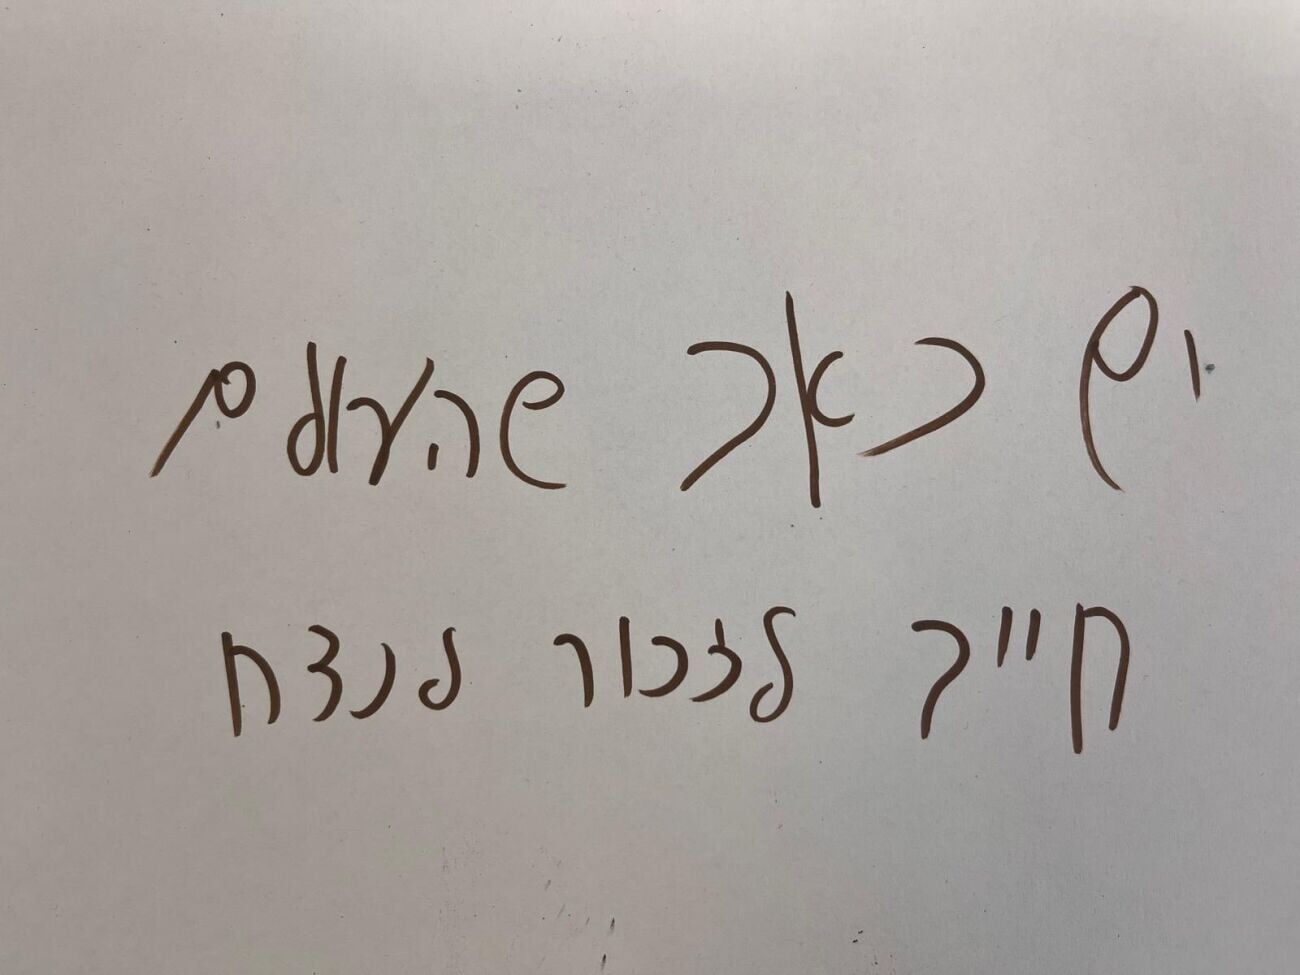 יש כאב שהעולם
חייב לזכור לנצח